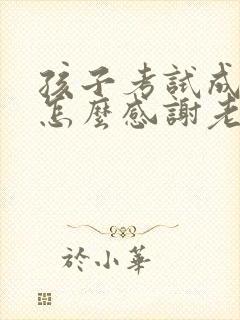 孩子考試成
怎麼感謝老
於小華